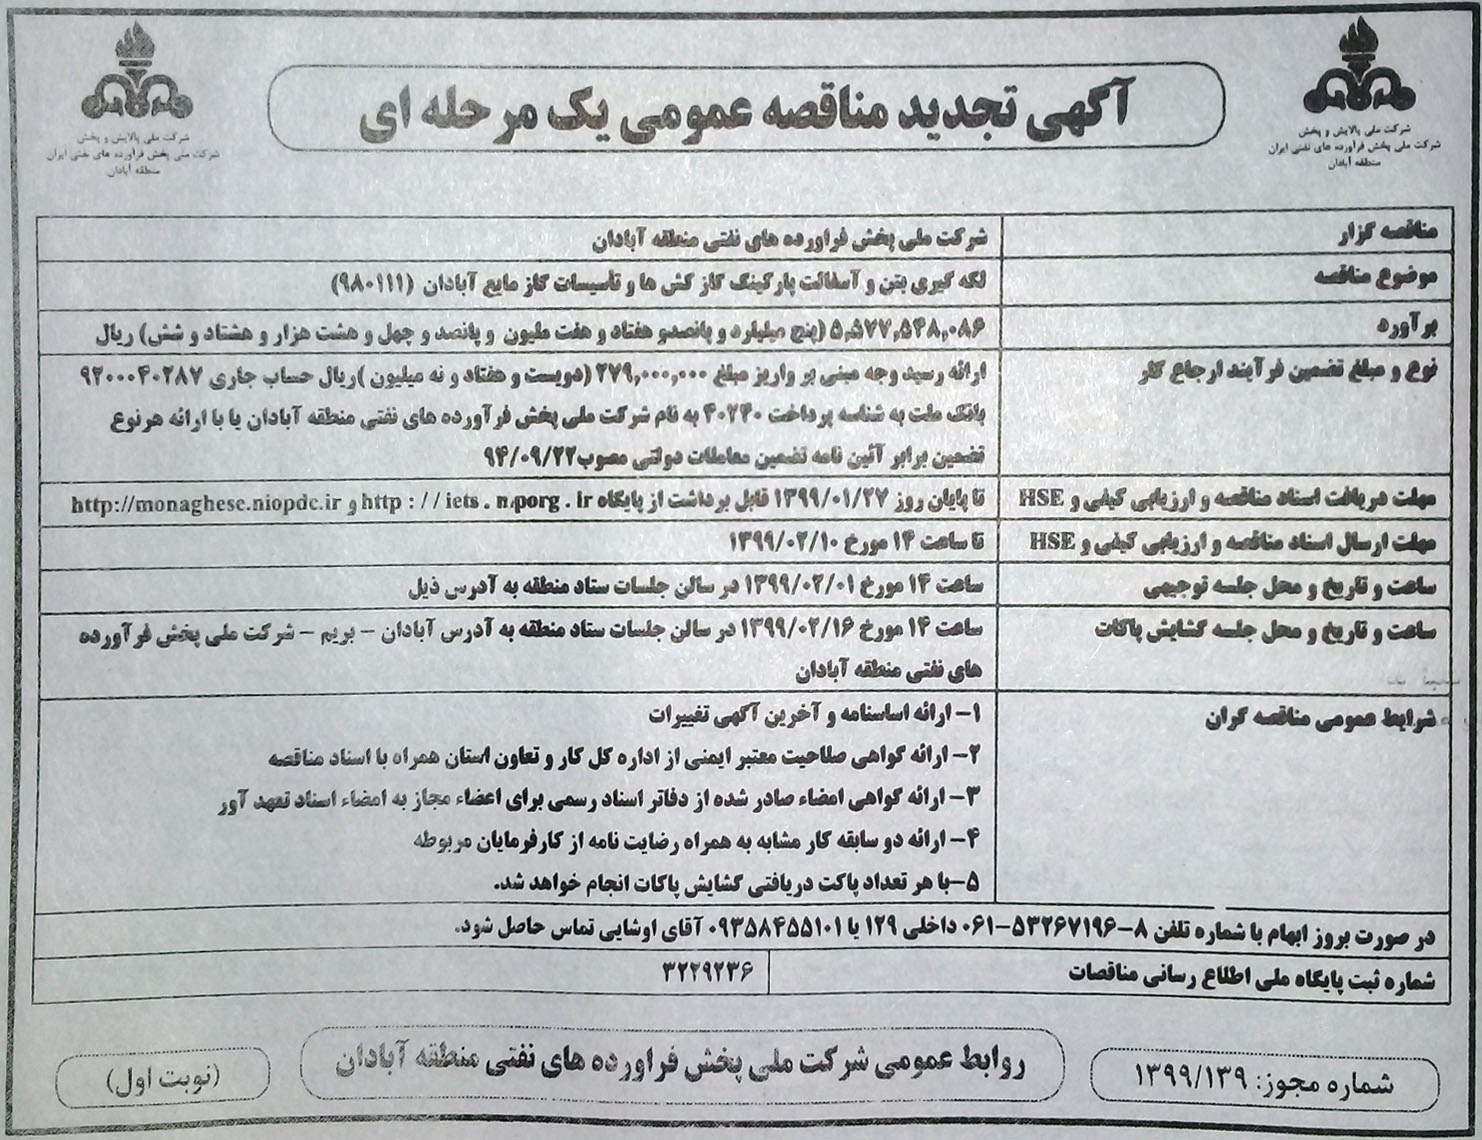 شرکت ملی پالایش و پخش
شرکت ملی پخش فرآورده های نفتی ایران
منطقه آبادان
آگهی تجدید مناقصه عمومی یک مرحله ای
شرکت ملی پالایش و پخش
شرکت ملی پخش فرآورده های نفتی ایران
منطقه آبادان
مناقصه گزار
شرکت ملی پخش فراورده های نفتی منطقه آبادان
موضوع مناقصه
لکه گیری بتن و آسفالت پارکینگ گاز کش ها و تأسیسات گاز مایع آبادان (۹۸۰۱۱۱)
برآورد
۵,۵۷۷,۵۴۸,۰۸۶ (پنج میلیارد و پانصدو هفتاد و هفت ملیون و پانصد و چهل و هشت هزار و هشتاد و شش) ریال
نوع و مبلغ تضمین فرآیند ارجاع کار
ارائه رسید وجه مبنی بر واریز مبلغ ۲۷۹,۰۰۰,۰۰۰ (دویست و هفتاد و نه میلیون )ریال حساب جاری ۹۲۰۰۰۴۰۲۸۷
بانک ملت به شناسه پرداخت ۴۰۲۴۰ به نام شرکت ملی پخش فرآورده های نفتی منطقه آبادان یا با ارائه هرنوع
تضمین برابر آئین نامه تضمین معاملات دولتی مصوب۹۴/۰۹/۲۲
مهلت دریافت اسناد مناقصه و ارزیابی کیفی و HSE
تا پایان روز ۱۳۹۹/۰۱/۲۷ قابل برداشت از پایگاه http : // iets . mporg . ir و http://monaghese.niopdc.ir
مهلت ارسال اسناد مناقصه و ارزیابی کیفی و HSE
تا ساعت ۱۴ مورخ ۱۳۹۹/۰۲/۱۰
ساعت و تاریخ و محل جلسه توجیهی
ساعت ۱۴ مورخ ۱۳۹۹/۰۲/۰۱ در سالن جلسات ستاد منطقه به آدرس ذیل
ساعت و تاریخ و محل جلسه گشایش پاکات
ساعت ۱۴ مورخ ۱۳۹۹/۰۲/۱۶ در سالن جلسات ستاد منطقه به آدرس آبادان – بریم – شرکت ملی پخش فرآورده
های نفتی منطقه آبادان
شرایط عمومی مناقصه گران
۱– ارائه اساسنامه و آخرین آگهی تغییرات
۲– ارائه گواهی صلاحیت معتبر ایمنی از اداره کل کار و تعاون استان همراه با اسناد مناقصه
۳– ارائه گواهی امضاء صادر شده از دفاتر اسناد رسمی برای اعضاء مجاز به امضاء اسناد تعهد آور
۴– ارائه دو سابقه کار مشابه به همراه رضایت نامه از کارفرمایان مربوطه
۵–با هر تعداد پاکت دریافتی گشایش پاکات انجام خواهد شد.
در صورت بروز ابهام با شماره تلفن ۸–۵۳۲۶۷۱۹۶–۰۶۱ داخلی ۱۲۹ یا ۰۹۳۵۸۴۵۵۱۰۱ آقای اوشایی تماس حاصل شود.
شماره ثبت پایگاه ملی اطلاع رسانی مناقصات
۳۲۲۹۲۳۶
شماره مجوز: ۱۳۹۹/۱۳۹
روابط عمومی شرکت ملی پخش فراورده های نفتی منطقه آبادان
(نوبت اول)